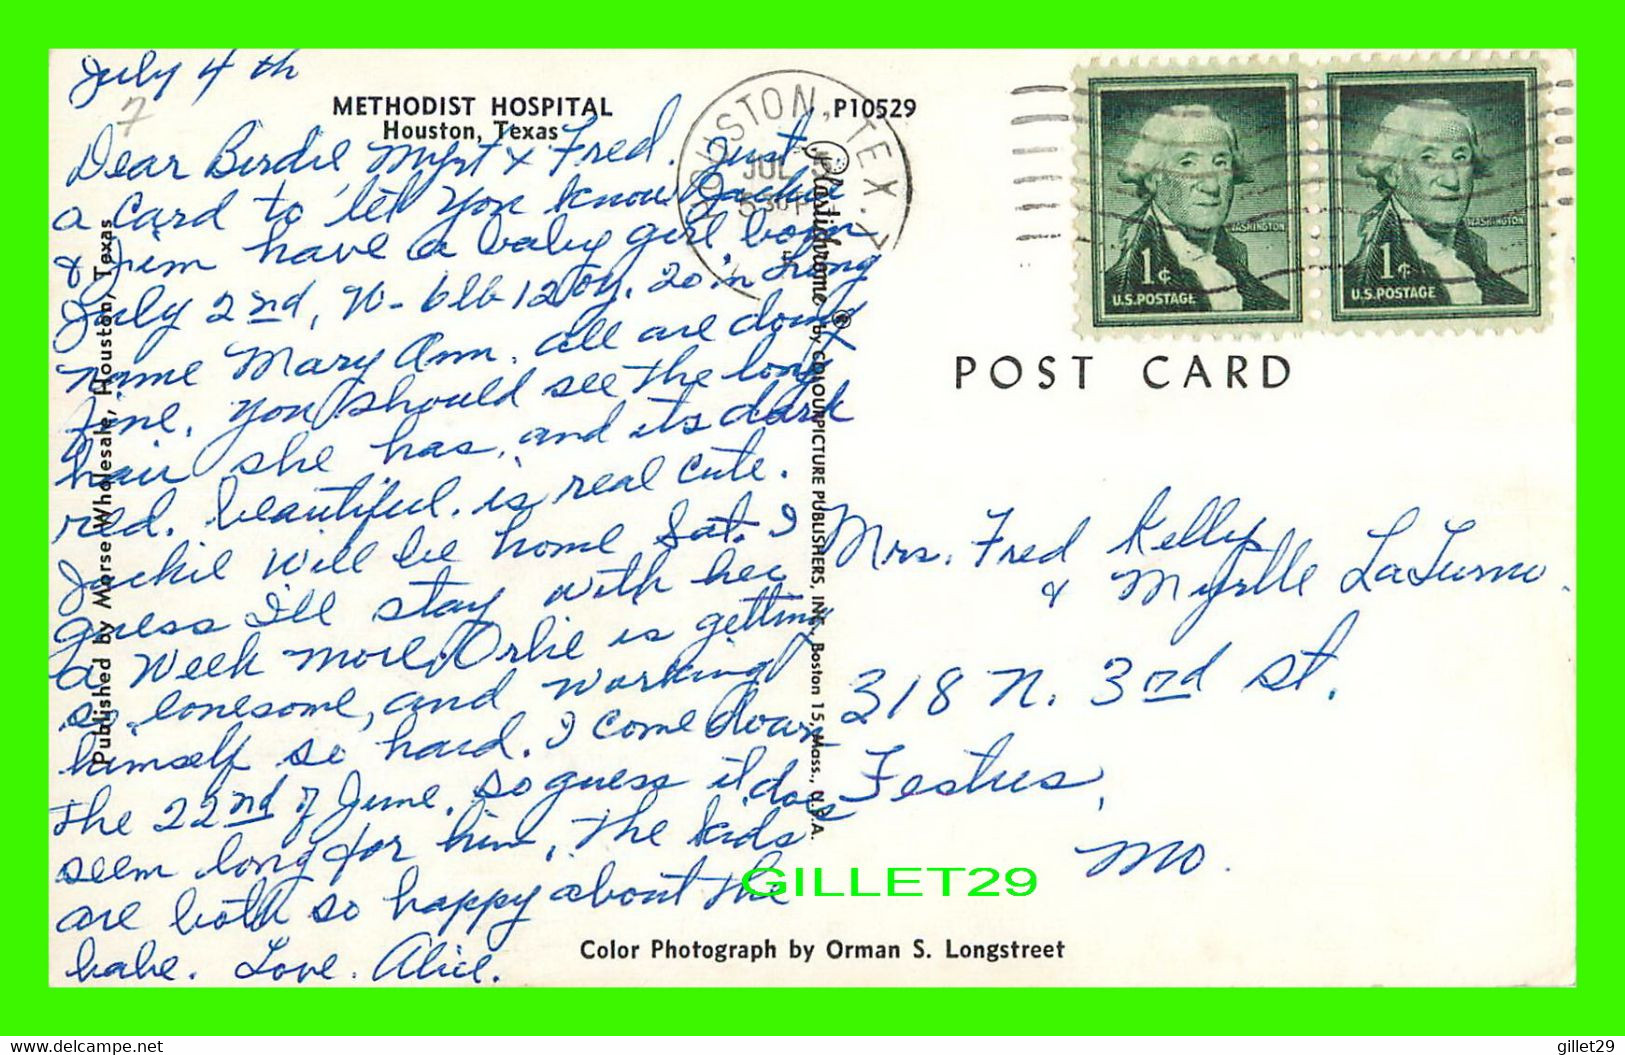 July 4 th
7
METHODIST HOSPITAL
Houston, Texas
P10529
Dear Birdie, Myrt & Fred. Just
a card to let you know Jackie
& Jim have a baby girl born
July 2nd, W- 6lb 12oz. 20 in long
name Mary Ann. all are doing
fine. You should see the long
hair she has, and its dark
red. beautiful. is real cute.
Jackie will be home Sat. I
guess I'll stay with her
a week more. Orlie is getting
so lonesome, and working
himself so hard. I come down
the 22nd of June. so guess it does
seem long for him. The kids
are both so happy about the
babe. Love. Alice.
Published by Morse Wholesale, Houston, Texas
Plastichrome ® by COLOURPICTURE PUBLISHERS, INC., Boston 15, Mass., U.S.A.
HOUSTON, TEX.
JUL 5
530 P
WASHINGTON
1¢
U.S. POSTAGE
WASHINGTON
1¢
U.S. POSTAGE
POST CARD
Mrs. Fred Kelley
& Myrtle
318 N. 3rd St.
Festus,
Mo.
GILLET29
Color Photograph by Orman S. Longstreet
delcampe.net
gillet29